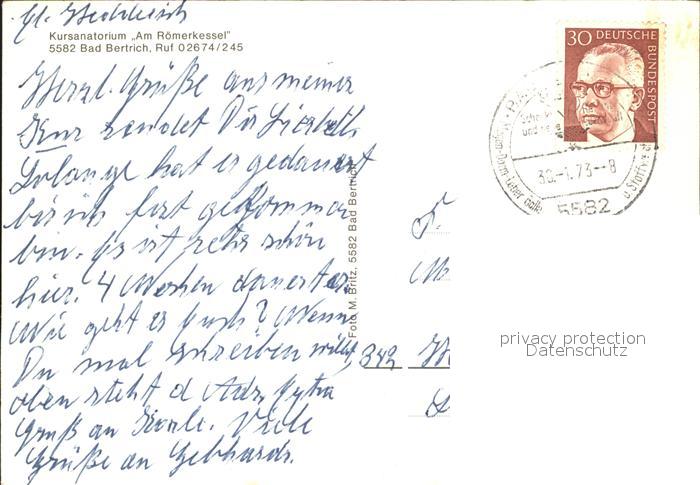 Kursanatorium „Am Römerkessel"
5582 Bad Bertrich, Ruf 02674/245
Herzl. Grüße aus meiner
Kur sendet Dir Liesbeth.
Solange hat es gedauert
bis ich fort gekommen
bin. Es ist sehr schön
hier. 4 Wochen dauert es.
Wie geht es Euch? Wenn
Du mal schreiben willst,
oben steht d. Adr. Extra
Gruß an Viele
Grüße an Gebhards.
Foto M. Britz, 5582 Bad Bertrich
30 DEUTSCHE
BUNDESPOST
30.-1.73--8
5582
privacy protection
Datenschutz